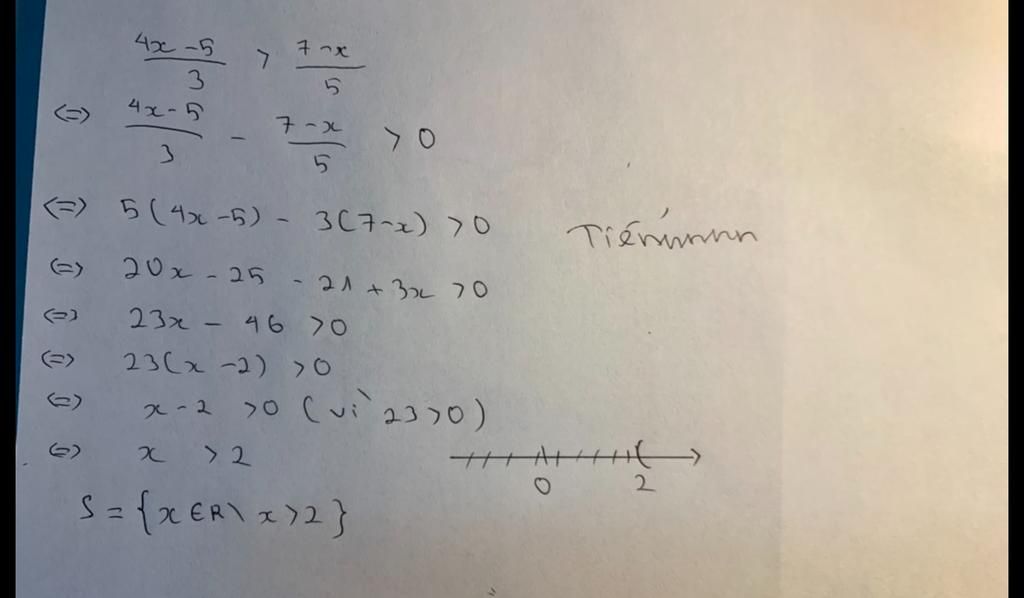 4x - 5 / 3 > 7 - x / 5
<=> 4x - 5 / 3 - 7 - x / 5 > 0
<=> 5(4x - 5) - 3(7 - x) > 0
<=> 20x - 25 - 21 + 3x > 0
<=> 23x - 46 > 0
<=> 23(x - 2) > 0
<=> x - 2 > 0 (vì 23 > 0)
<=> x > 2
0 2
S = {x ∈ R \ x > 2}